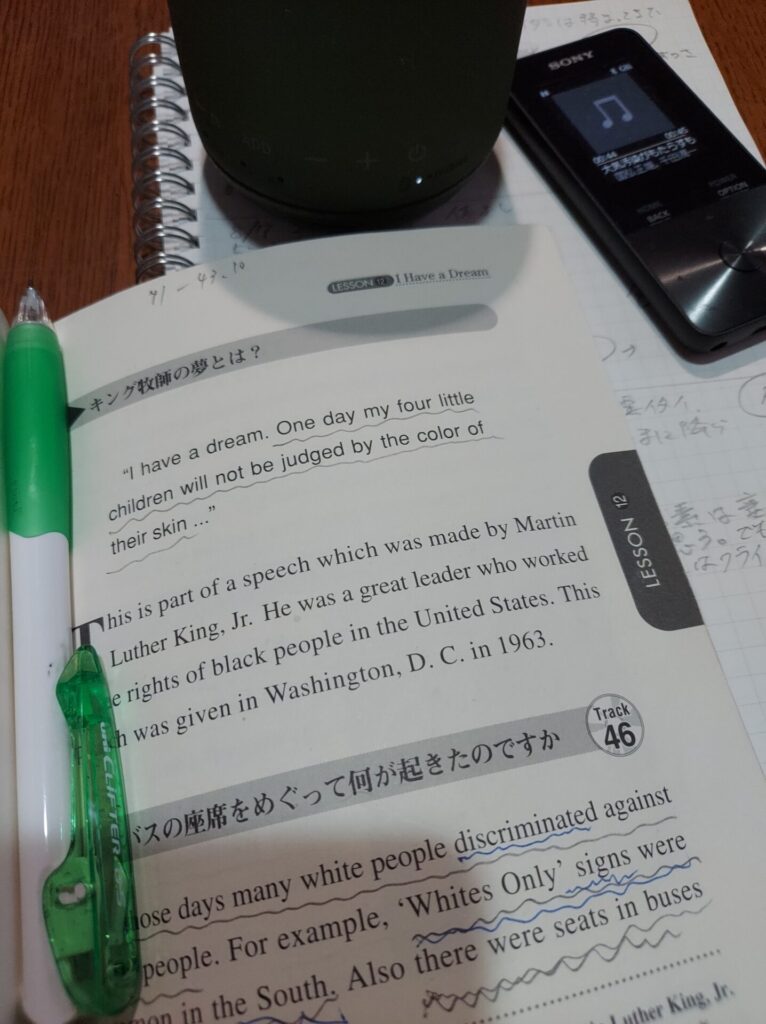 SONY
00:44
00:45
POWER
HOME
BACK
OPTION
ADD
41 - 43.10
LESSON 12 I Have a Dream
キング牧師の夢とは？
“I have a dream. One day my four little
children will not be judged by the color of
their skin ...”
This is part of a speech which was made by Martin
Luther King, Jr. He was a great leader who worked
e rights of black people in the United States. This
h was given in Washington, D. C. in 1963.
LESSON 12
バスの座席をめぐって何が起きたのですか
Track
46
hose days many white people discriminated against
people. For example, ‘Whites Only’ signs were
mon in the South. Also there were seats in buses
Luther King, Jr.
uni CLIFTER